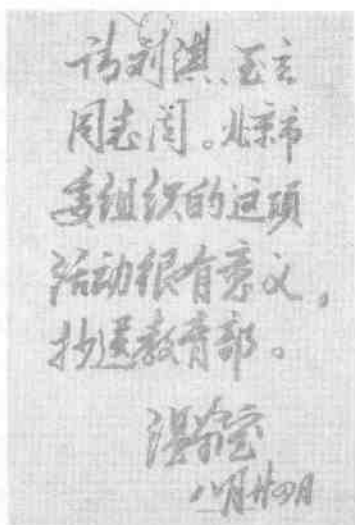 请刘淇、至立
同志阅。北京市
委组织的这项
活动很有意义，
抄送教育部。
温家宝
八月廿四日